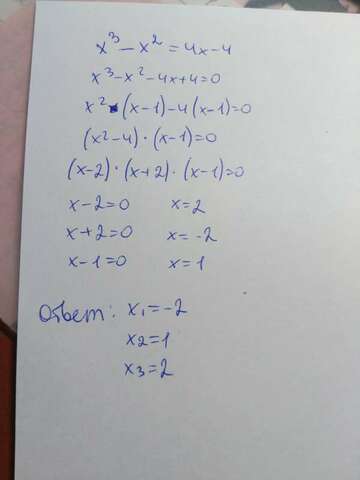 x³-x²=4x-4
x³-x²-4x+4=0
x²·(x-1)-4(x-1)=0
(x²-4)·(x-1)=0
(x-2)·(x+2)·(x-1)=0
x-2=0 x=2
x+2=0 x=-2
x-1=0 x=1
Ответ: x₁=-2
x₂=1
x₃=2